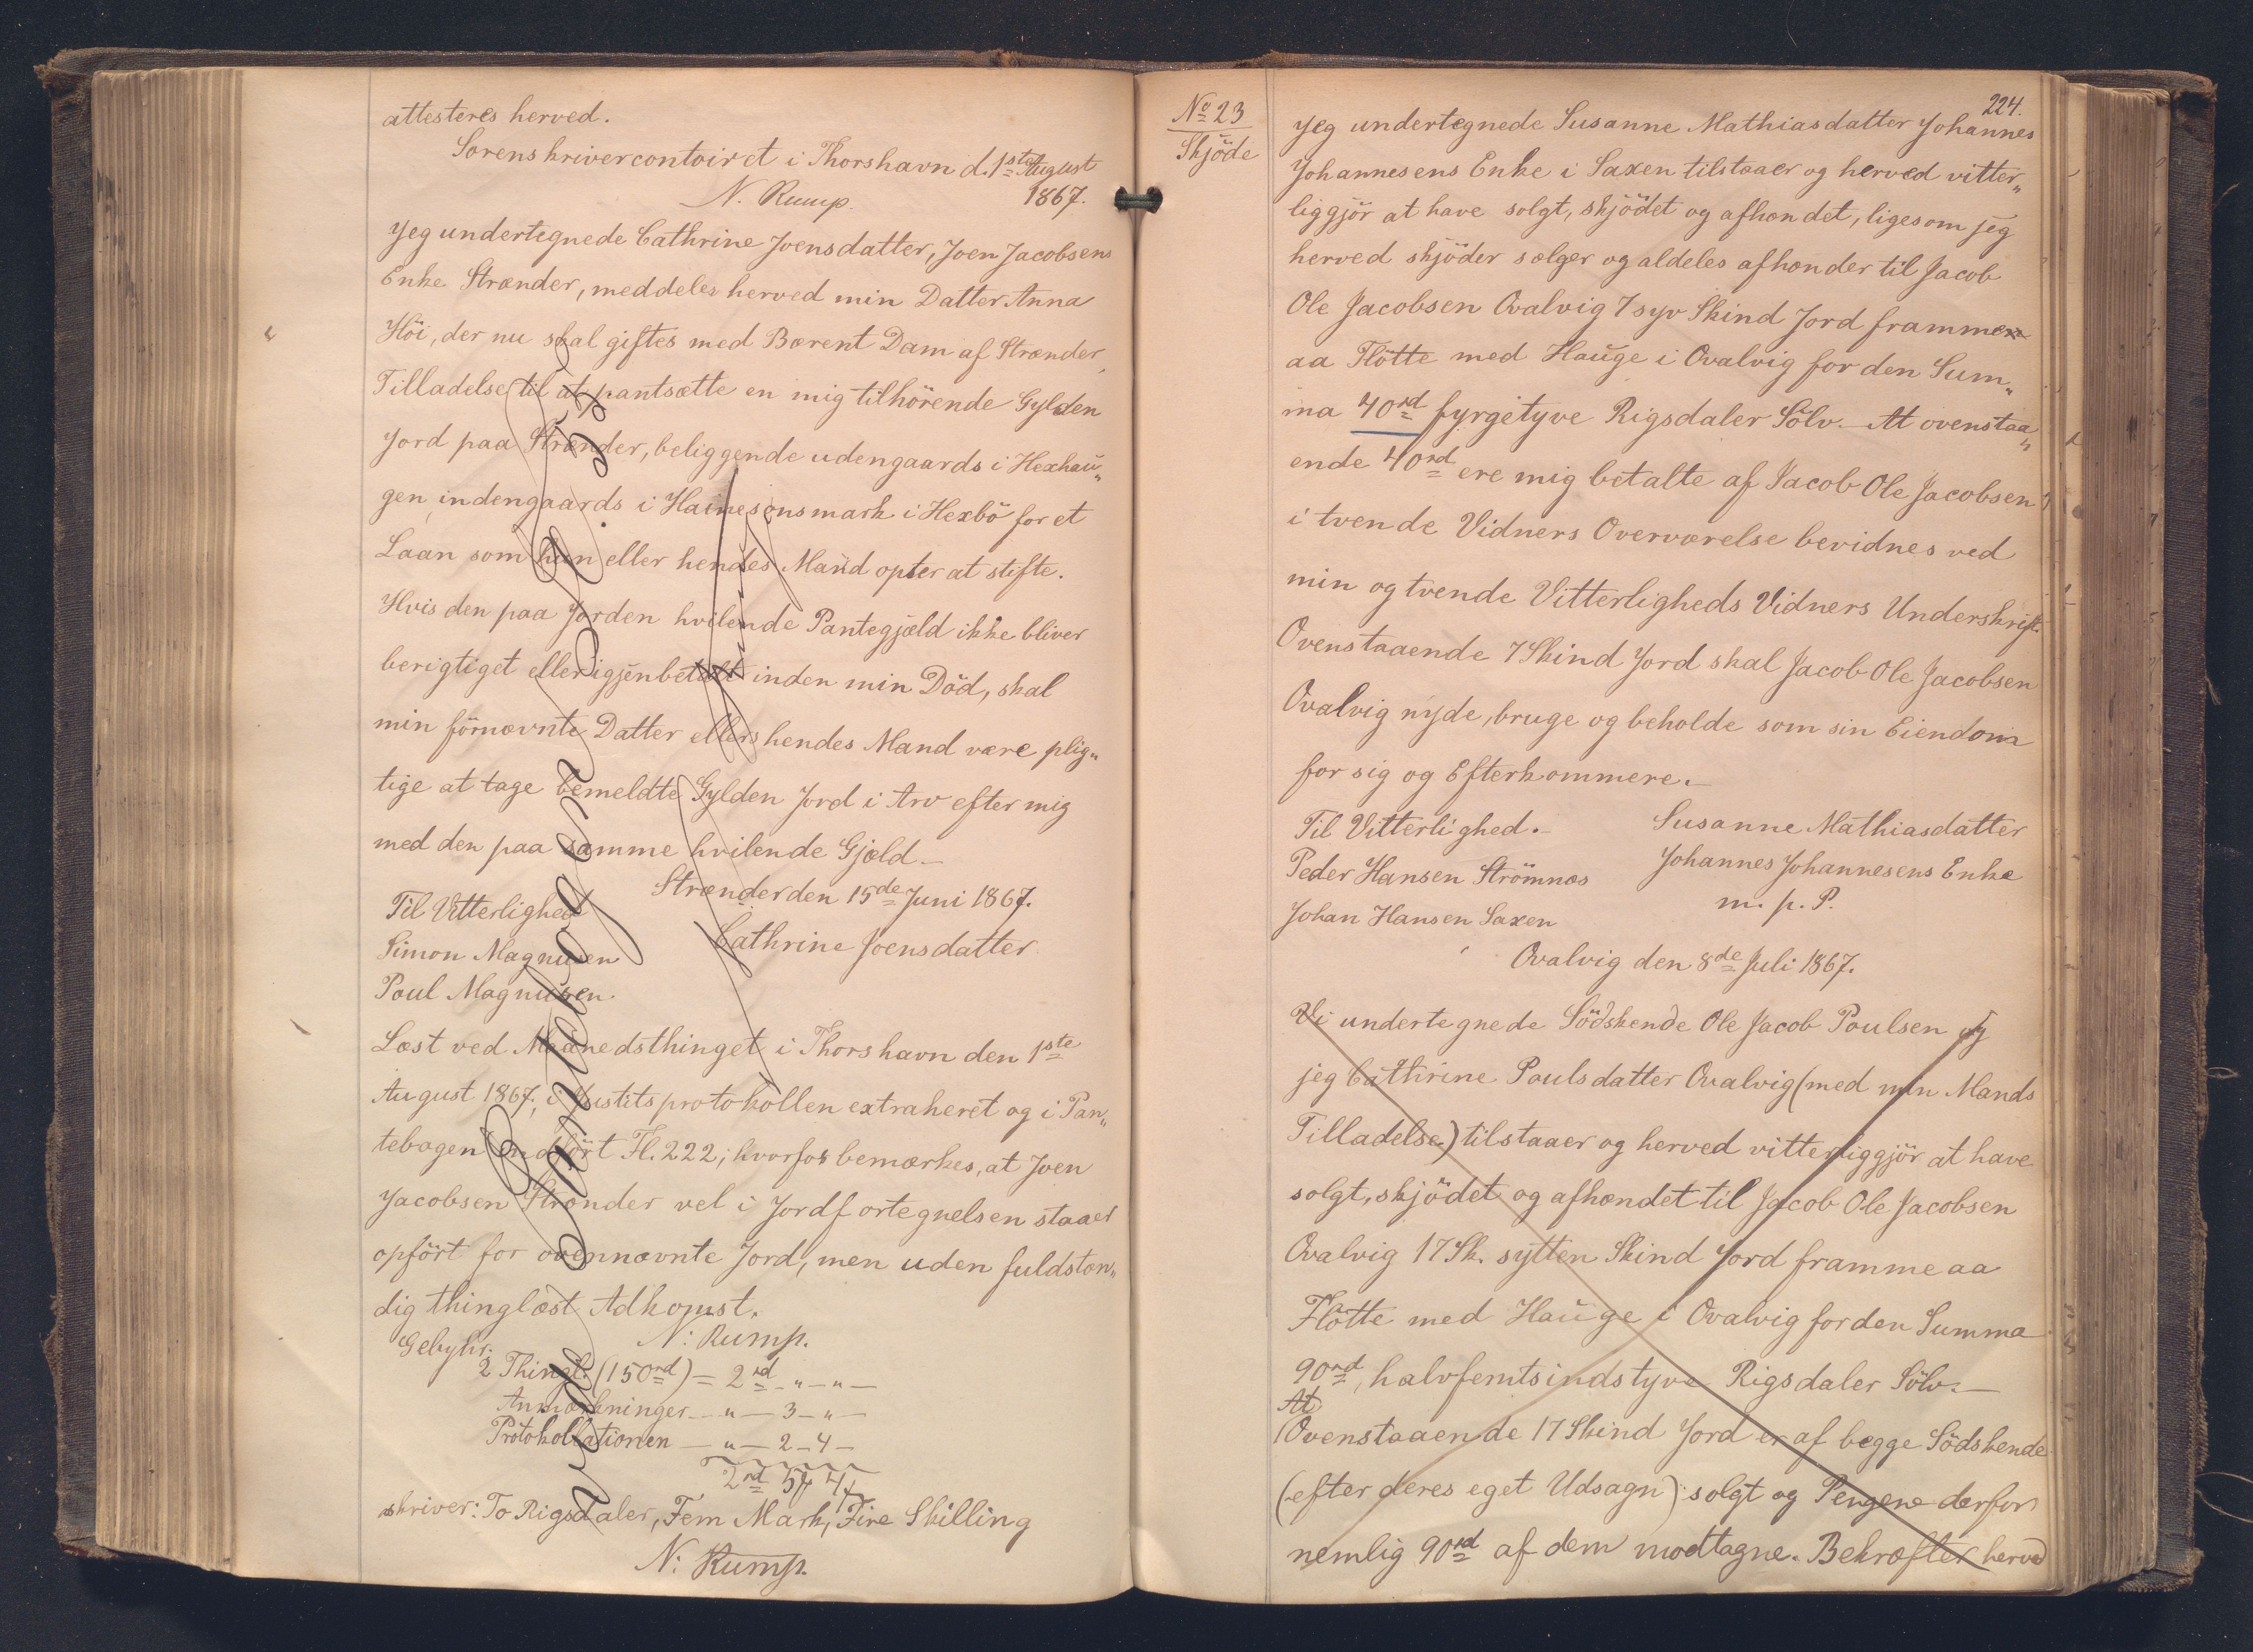 attesteres herved.
Sorenskrivercontoiret i Thorshavn d. 1ste August
N. Rump. 1867.
Jeg undertegnede Cathrine Joensdatter, Joen Jacobsens
Enke Strænder, meddeles herved min Datter Anna
Höi, der nu skal giftes med Bærent Dam af Strænder,
Tilladelse til at pantsætte en mig tilhörende Gylden
Jord paa Strænder, beliggende udengaards i Hexhaü„
gen, indengaards i Hainesonsmark i Hexbö for et
Laan som hun eller hendes Mand opter at stifte.
Hvis den paa Jorden hvilende Pantegjæld ikke bliver
berigtiget eller igjenbetalt inden min Död, skal
min förnævnte Datter ellers hendes Mand være plig„
tige at tage bemeldte Gylden Jord i Arv efter mig
med den paa samme hvilende Gjæld.—
Strænder den 15de Juni 1867.
Til Vitterlighed
Cathrine Joensdatter
Simon Magnusen
Poul Magnusen.
Læst ved Maanedsthinget i Thorshavn den 1ste
August 1867, i Justitsprotokollen extraheret og i Pan„
tebogen indfört Fl. 222; hvorfor bemærkes, at Joen
Jacobsen Strænder vel i Jordfortegnelsen staaer
opfört for ovennævnte Jord, men uden fuldstæn„
dig thinglæst Adkomst.
N: Rump.
Gebyhr:
2 Thingl. (150rd) = 2rd - „ - „ -
Anmærkninger - „ - 3 - „ -
Protokollationen - „ - 2 - 4 -
2rd 5 4
skriver: To Rigsdaler, Fem Mark, Fire Skilling
N: Rump.
224.
No 23
Skjöde
Jeg undertegnede Susanne Mathiasdatter Johannes
Johannesens Enke i Saxen tilstaaer og herved vitter„
liggjör at have solgt, skjödet og afhændet, ligesom jeg
herved skjöder sælger og aldeles afhænder til Jacob
Ole Jacobsen Qvalvig 7 syv Skind Jord framme
aa Flötte med Haüge i Qvalvig for den Sum„
ma 40rd fyrgetyve Rigsdaler Sölv.— At ovenstaa„
ende 40rd ere mig betalte af Jacob Ole Jacobsen
i tvende Vidners Overværelse bevidnes ved
min og tvende Vitterligheds Vidners Underskrift.
Ovenstaaende 7 Skind Jord skal Jacob Ole Jacobsen
Qvalvig nyde, bruge og beholde som sin Eiendom
for sig og Efterkommere.—
Til Vitterlighed.— Susanne Mathiasdatter
Peder Hansen Strömnæs Johannes Johannesens Enke
Johan Hansen Saxen m. p. P.
Qvalvig den 8de Juli 1867.
Vi undertegnede Södskende Ole Jacob Poulsen og
jeg Cathrine Poulsdatter Qvalvig (med min Mands
Tilladelse) tilstaaer og herved vitterliggjör at have
solgt, skjödet og afhændet til Jacob Ole Jacobsen
Qvalvig 17 Sk. sytten Skind Jord framme aa
Flötte med Haüge i Qvalvig for den Summa
90rd, halvfemtsindstyve Rigsdaler Sölv.—
At
Ovenstaaende 17 Skind Jord er af begge Södskende
(efter deres eget Udsagn) solgt og Pengene derfor
nemlig 90rd af dem modtagne. Bekræfter herved